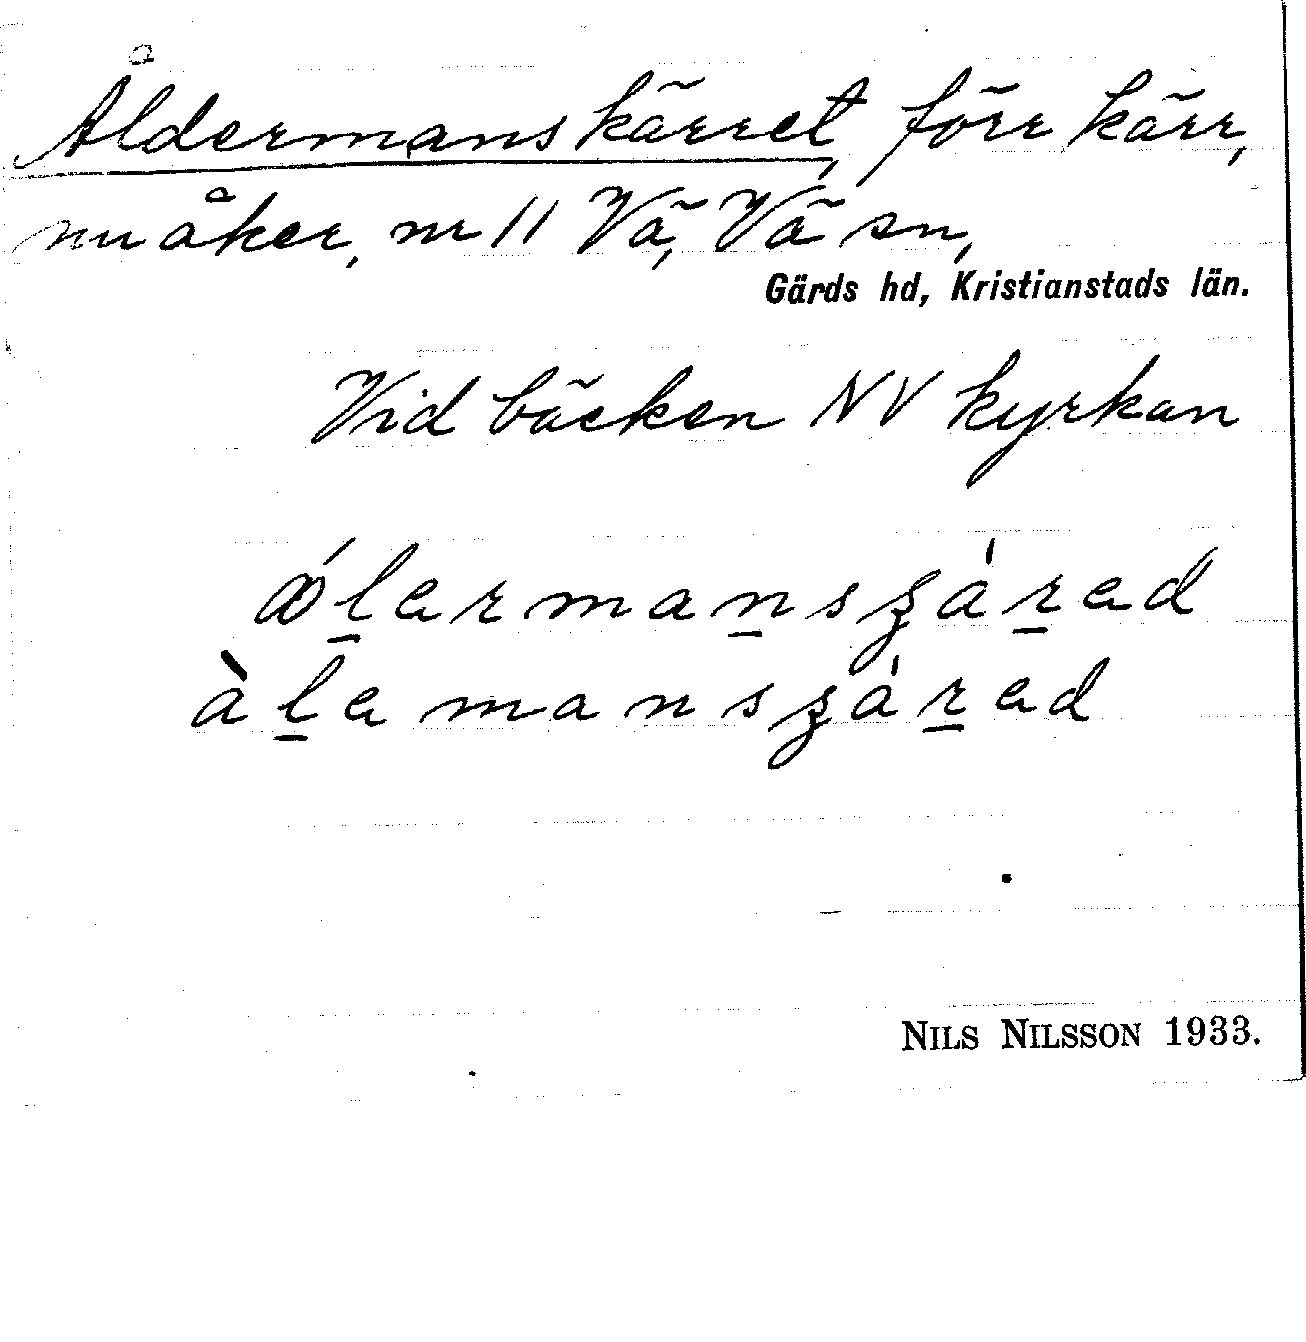 Åldermanskärret, förr kärr,
nu åker, nr 11 Vä, Vä sn,
Gärds hd, Kristianstads län.
Vid bäcken NV kyrkan
ɑ́l̠erman̠sʒár̠ed
àl̠emansʒár̠ed
NILS NILSSON 1933.